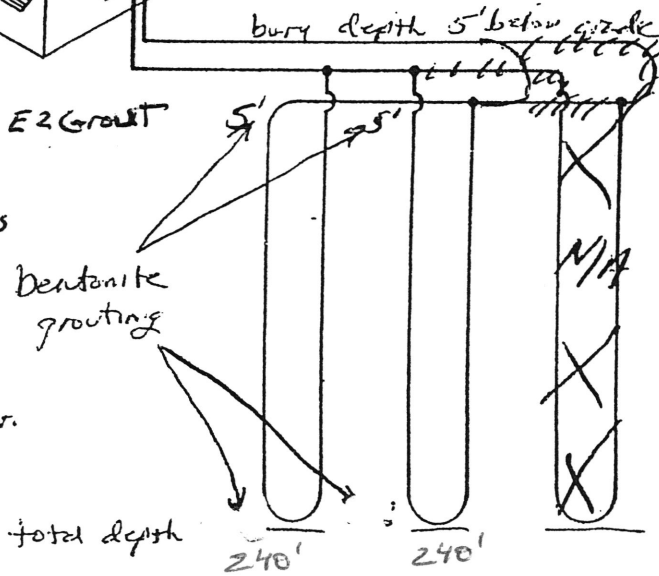 bury depth 5' below grade
EZ Grout 5' 5'
s
bentonite
grouting
N/A
r.
total depth
240' 240'